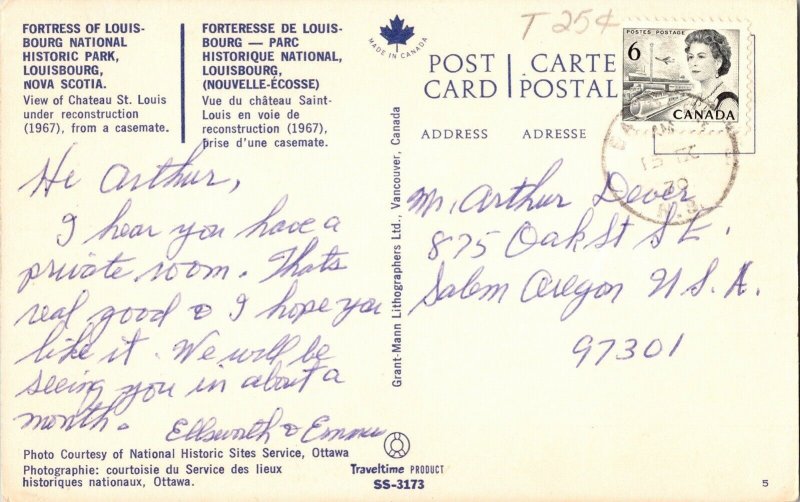 FORTRESS OF LOUIS-
BOURG NATIONAL
HISTORIC PARK,
LOUISBOURG,
NOVA SCOTIA.
View of Chateau St. Louis
under reconstruction
(1967), from a casemate.
FORTERESSE DE LOUIS-
BOURG — PARC
HISTORIQUE NATIONAL,
LOUISBOURG,
(NOUVELLE-ÉCOSSE)
Vue du château Saint-
Louis en voie de
reconstruction (1967),
prise d'une casemate.
MADE IN CANADA
T 25¢
POST CARD
CARTE POSTALE
ADDRESS
ADRESSE
POSTES POSTAGE
6
CANADA
Hi Arthur,
I hear you have a
private room. Thats
real good & I hope you
like it. We will be
seeing you in about a
month.
Ellsworth &
Mr. Arthur Dever
875 Oak St S.E.
Salem Oregon U.S.A.
97301
Grant-Mann Lithographers Ltd., Vancouver, Canada
Photo Courtesy of National Historic Sites Service, Ottawa
Photographie: courtoisie du Service des lieux
historiques nationaux, Ottawa.
Traveltime PRODUCT
SS-3173
5